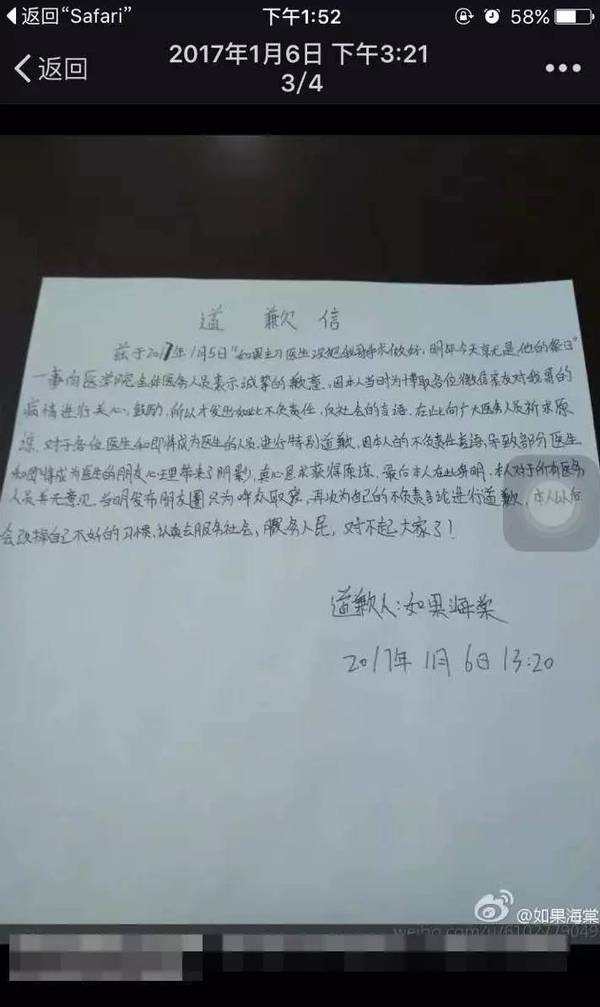 返回“Safari” 下午1:52 58%
返回 2017年1月6日 下午3:21
3/4
道 歉 信
兹于2017年1月5日“如果主刀医生没把我手术做好,明年今天就是他的祭日”
一事向医学院全体医务人员表示诚挚的歉意,因本人当时为博取各位微信亲友对我的
病情进行关心,鼓励,所以才发出如此不负责任,反社会的言语,在此向广大医务人员祈求原
谅,对于各位医生和即将成为医生的人员,进行特别道歉,因本人的不负责任言语,导致部分医生
和即将成为医生的朋友心里带来了阴影,真心恳求获得原谅,最后本人在此声明,本人对于所有医务
人员并无意见,当时发布朋友圈只为哗众取宠,再次为自己的不负责言论进行道歉,本人以后
会改掉自己不好的习惯,认真去服务社会,服务人民,对不起大家了!
道歉人:如果海棠
2017年1月6日 13:20
@如果海棠
weibo.com/u/6102779049